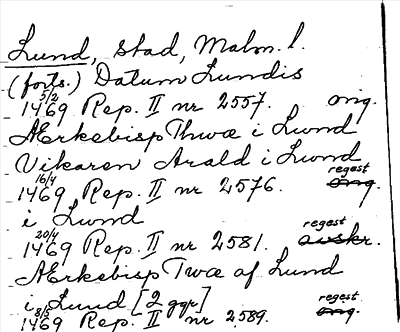 Lund, stad, Malm. l.
(forts.) Datum Lundis
5/2 1469 Rep. II nr 2557. orig.
Ærkebisp Thwæ i Lwnd
Vikaren Arald i Lwnd
16/4 1469 Rep. II nr 2576. regest orig.
i Lwnd
20/4 1469 Rep. II nr 2581. regest avskr.
Ærkebisp Twæ af Lund
i Lund [2 ggr]
8/5 1469 Rep. II nr 2589. regest orig.